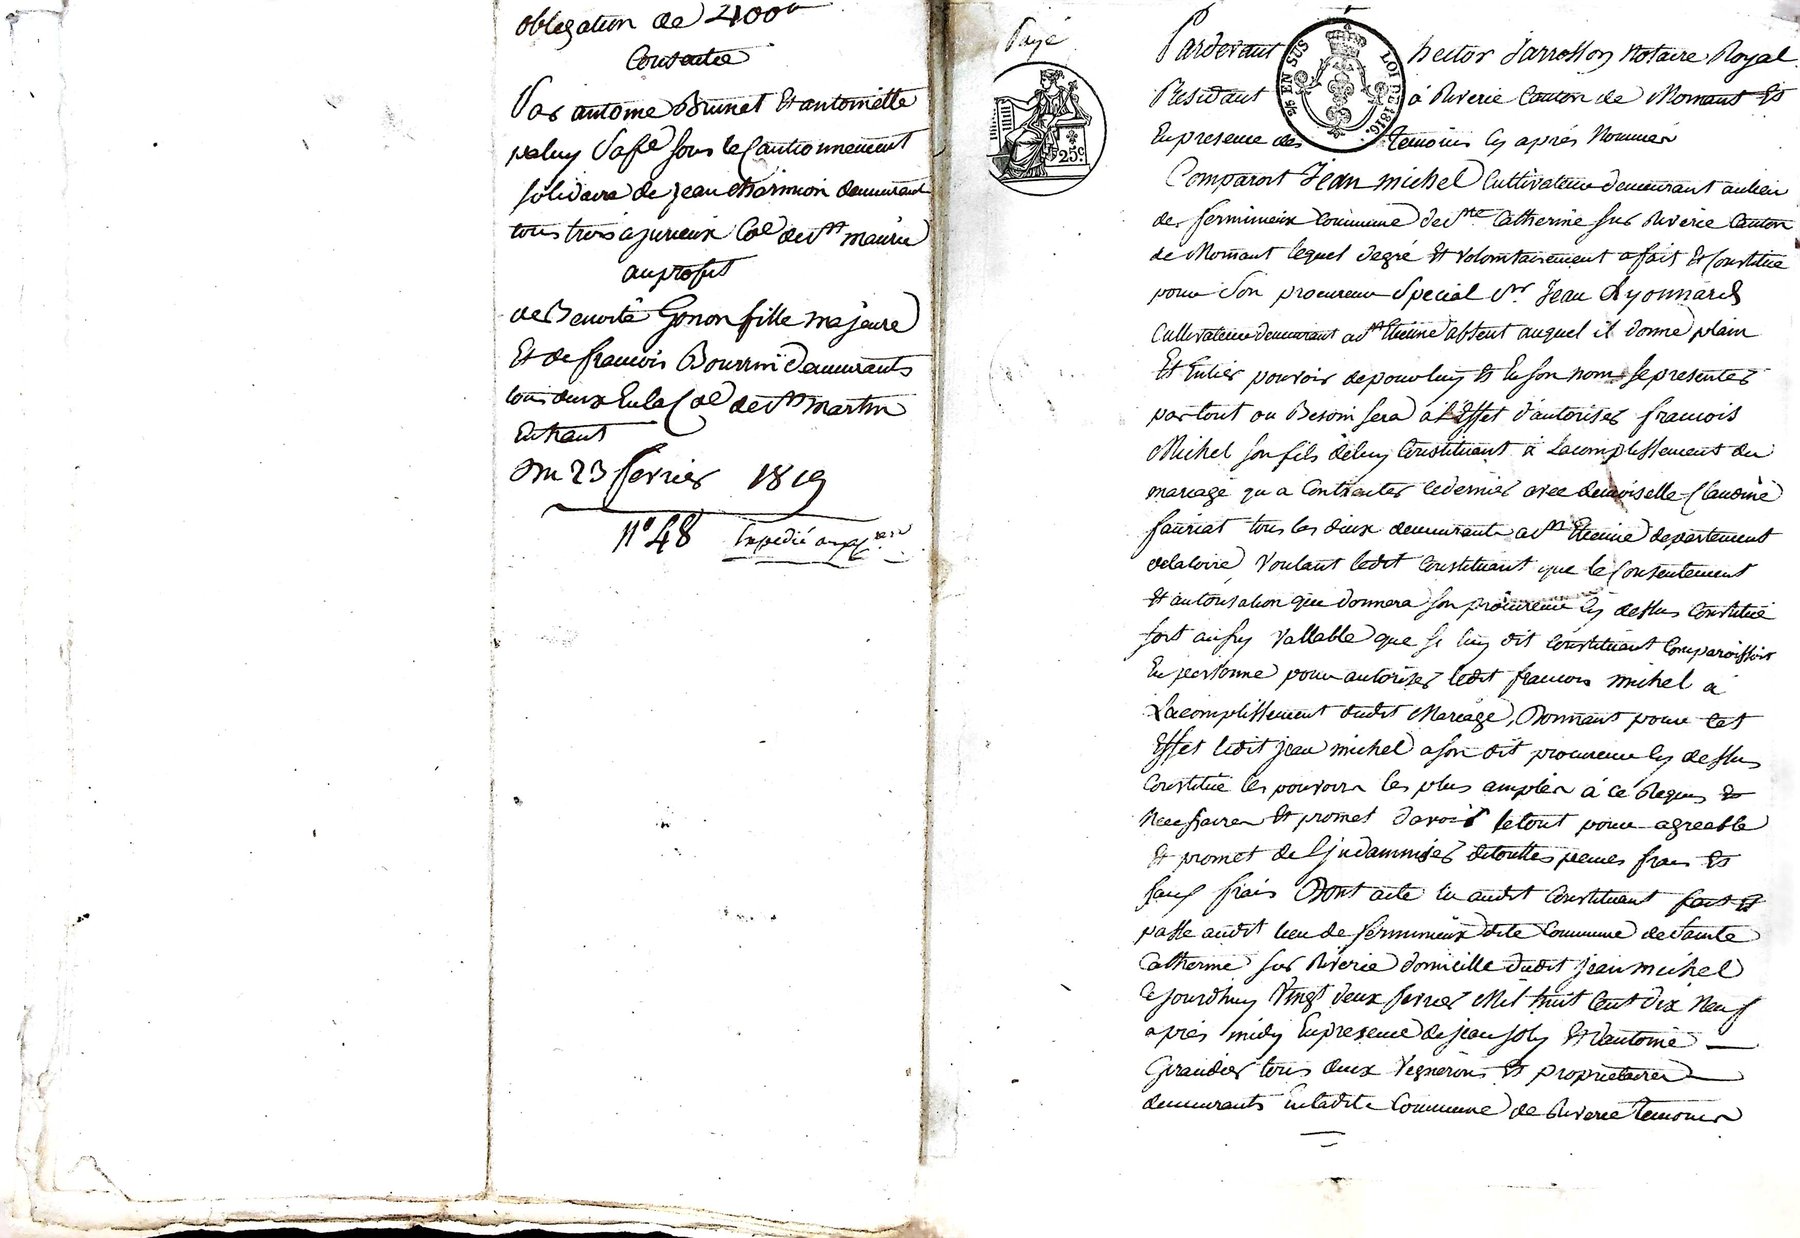 obligation de 400 tt
Consentie
Par antoine Brunet Et antoinette
paluy Sa fe sous le Cautionnement
solidaire de jean charmion demeurant
tous trois a jurieux Cne de St maurice
au profit
de Benoite Gonon fille majeure
Et de francois Bourrin demeurants
tous deux En la Cne de St martin
En haut
Du 23 fevrier 1819
n° 48 Expedié
Payé
25c.
2e EN SUS LOI DE 1816.
Pardevant hector Jarrosson Notaire Royal
Residant à Riverie Canton de Mornant Et
En presence des temoins Cy après Nommés
Comparoit Jean michel Cultivateur demeurant au lieu
de fermineux Commune de Ste Catherine sur Riverie Canton
de Mornant lequel de gré Et volontairement a fait Et Constitué
pour Son procureur Special Sr Jean Lyonnard
Cultivateur demeurant a St Etienne absent auquel il donne plain
Et Entier pouvoir de pour luy Et En son nom se presenter
par tout ou Besoin sera à l'Effet d'autoriser francois
Michel son fils de luy Constituant à Lacomplissement du
mariage qu a Contracter ce dernier avec demoiselle Claudine
fauriat tous les deux demeurant a St Etienne departement
de la loire Voulant ledit Constituant que le Consentement
Et autorisation que donnera son procureur Cy dessus Constitué
soit aussy Vallable que si luy dit Constituant Comparoissoit
En personne pour autoriser ledit francois michel à
Lacomplissement dudit Mariage, Donnant pour Cet
Effet ledit jean michel a son dit procureur Cy dessus
Constitué les pouvoirs les plus amples à ce Requis Et
Necessaires Et promet d'avoir le tout pour agreable
Et promet de l'jndamniser de touttes peines frais Et
faux frais Dont acte lu audit Constituant fait Et
passé audit lieu de fermineux dite Commune de Sainte
Catherine sur Riverie domicille dudit jean michel
Ce jourdhuy Vingt deux fevrier Mil huit Cent dix Neuf
après midy En presence de jean joly Et d'antoine
Giraudier tous deux Vignerons Et propriétaires
demeurants En ladite Commune de Riverie temoins